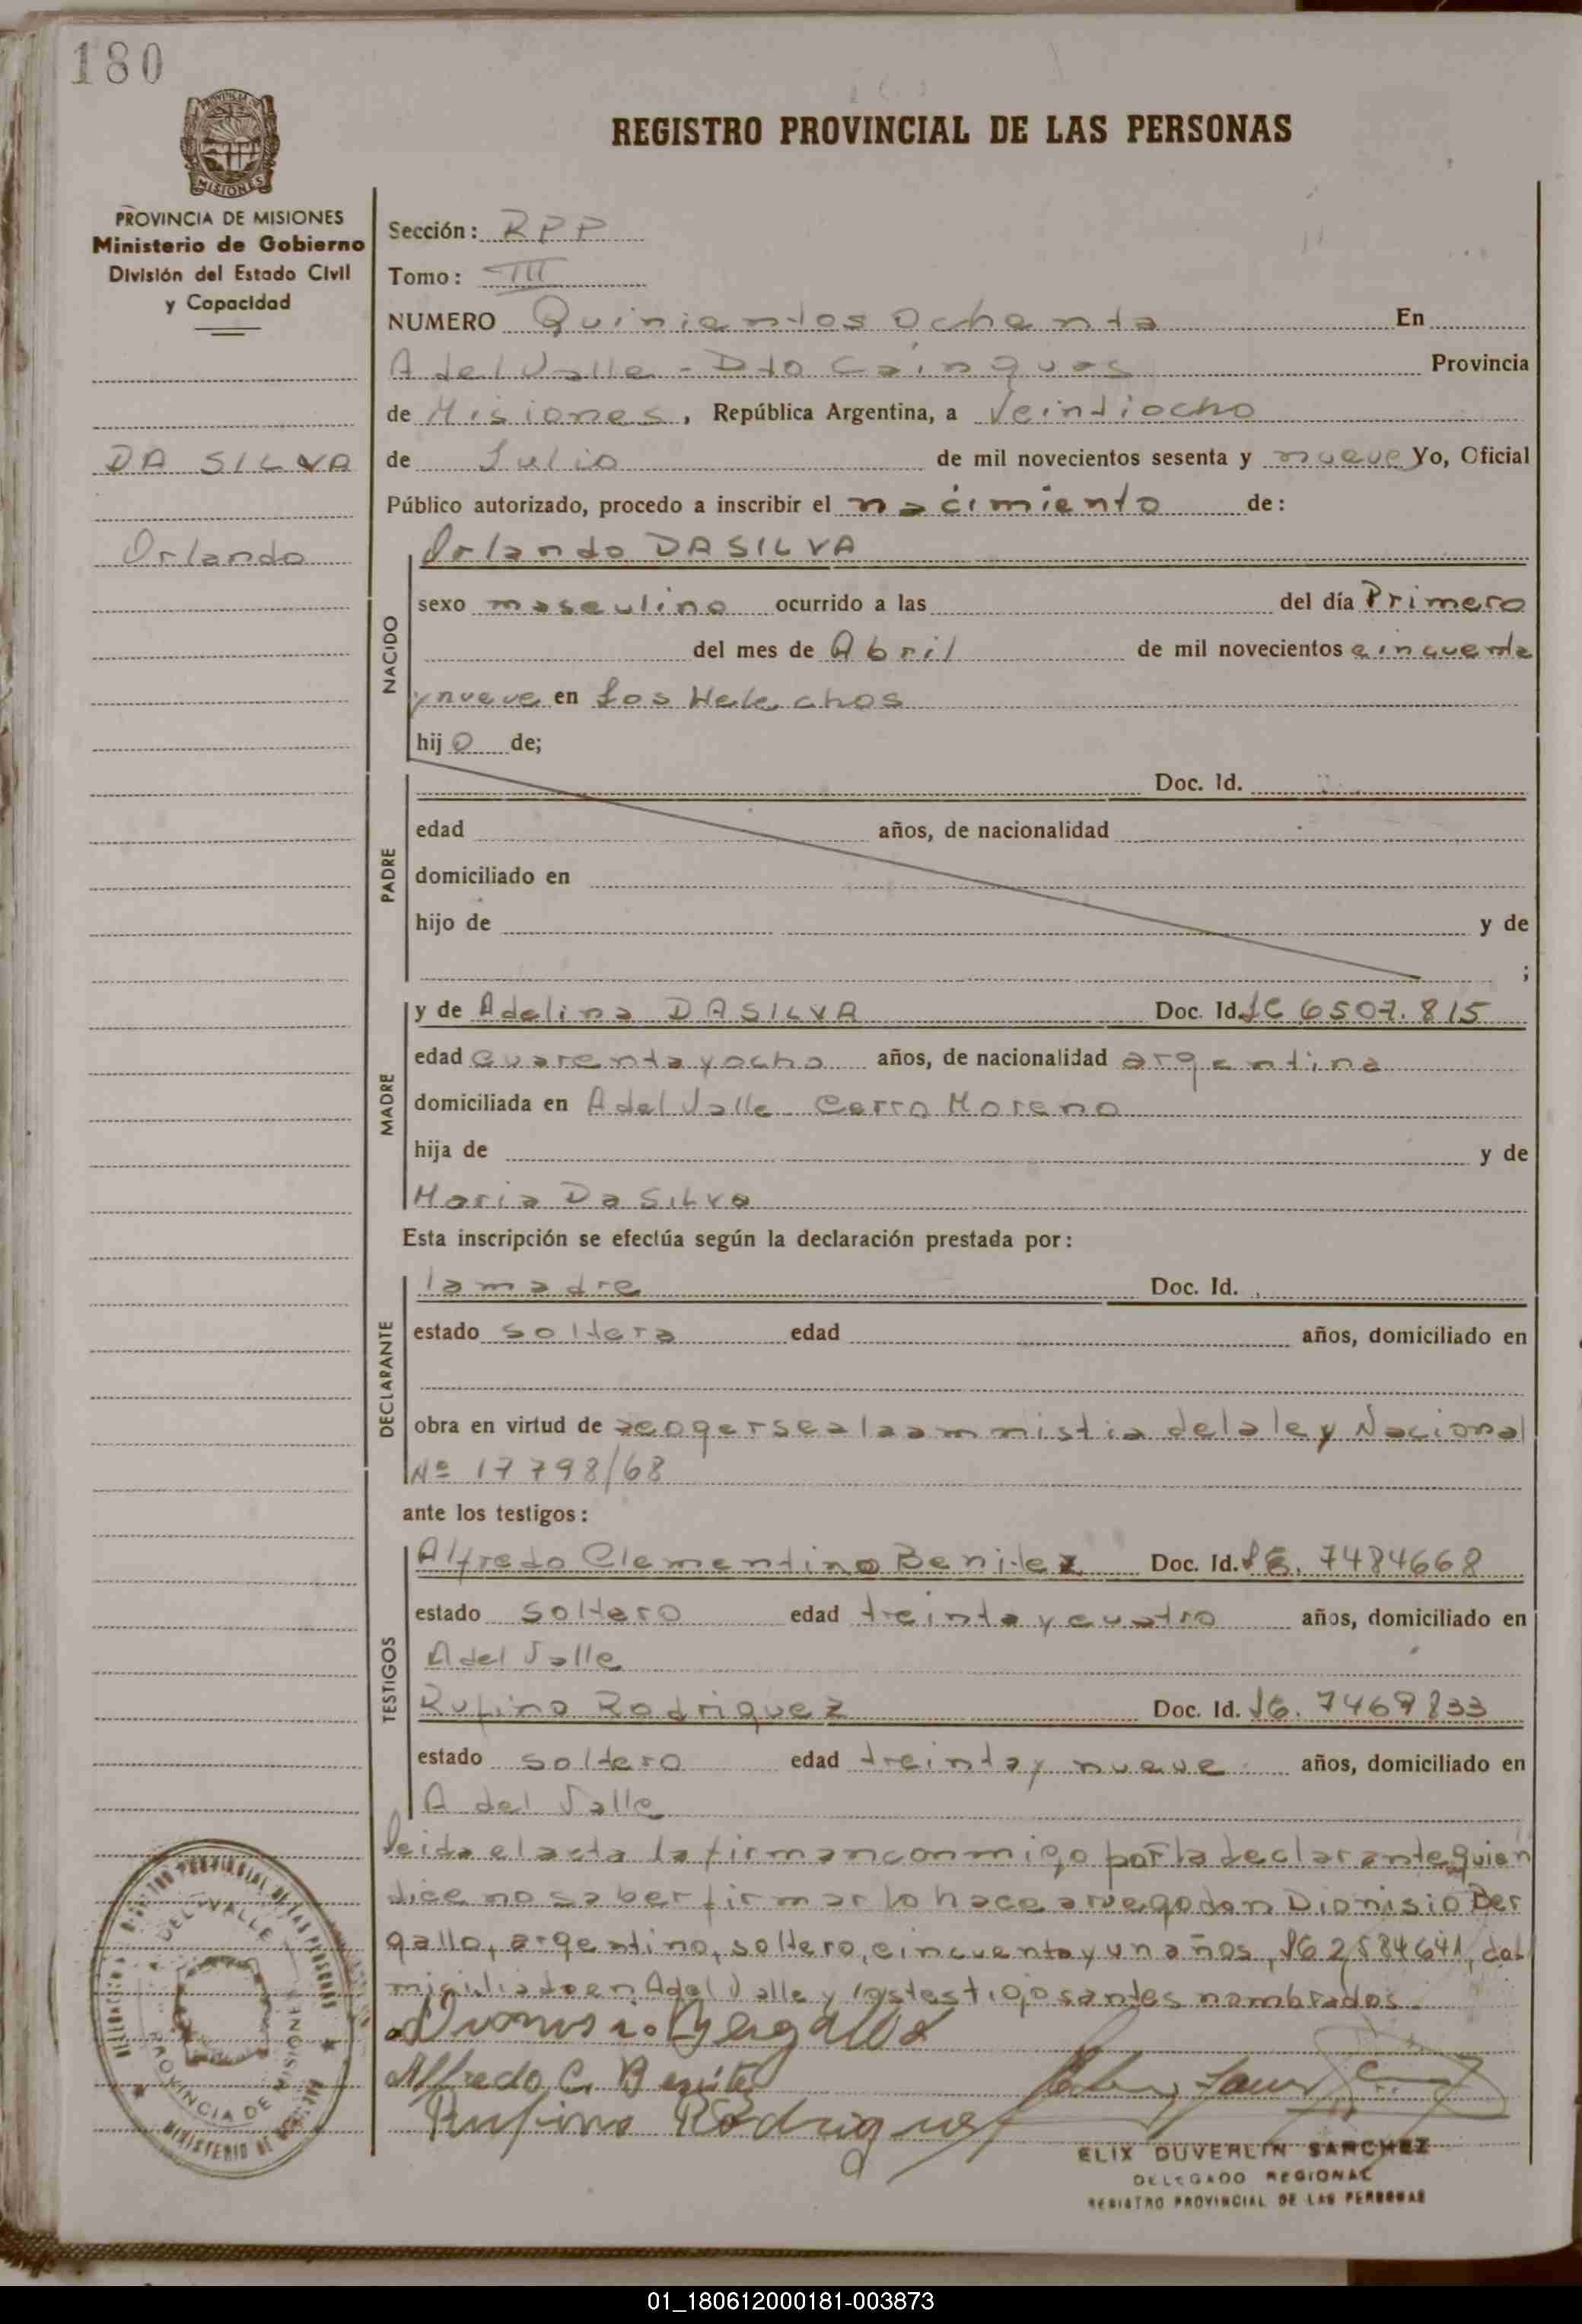 180
PROVINCIA DE MISIONES
Ministerio de Gobierno
División del Estado Civil
y Capacidad
DA SILVA
Orlando
REGISTRO PROVINCIAL DE LAS PERSONAS
Sección: RPP
Tomo: III
NUMERO Quinientos Ochenta En
A del Valle - Dto Cainguas Provincia
de Misiones, República Argentina, a Veintiocho
de Julio de mil novecientos sesenta y nueve Yo, Oficial
Público autorizado, procedo a inscribir el nacimiento de:
NACIDO
Orlando DA SILVA
sexo masculino ocurrido a las del día Primero
del mes de Abril de mil novecientos cincuenta
y nueve en Los Helechos
hijo de;
PADRE
Doc. Id.
edad años, de nacionalidad
domiciliado en
hijo de y de
;
MADRE
y de Adelina DA SILVA Doc. Id. LC 6507.815
edad cuarenta y ocho años, de nacionalidad argentina
domiciliada en A del Valle Cerro Moreno
hija de y de
Maria Da SILVA
Esta inscripción se efectúa según la declaración prestada por:
DECLARANTE
la madre Doc. Id.
estado soltera edad años, domiciliado en
obra en virtud de acogerse a la ammistia de la ley Nacional
Nº 17798/68
ante los testigos:
TESTIGOS
Alfredo Clementino Benitez Doc. Id. 7484668
estado soltero edad treinta y cuatro años, domiciliado en
A del Valle
Rufino Rodriguez Doc. Id. 7469833
estado soltero edad treinta y nueve años, domiciliado en
A del Valle
Leida el acta la firman conmigo por la declarante quien
dice no saber firmar lo hace a ruego don Dionisio Ber
gallo, argentino, soltero, cincuenta y un años, 2584641, do
miciliado en A del Valle y los testigos antes nombrados.
Dionisio Bergallo
Alfredo C. Benitez
Rufino Rodriguez
ELIX DUVERLIN SANCHEZ
DELEGADO REGIONAL
REGISTRO PROVINCIAL DE LAS PERSONAS
DEL VALLE
PROVINCIA DE MISIONES
01_180612000181-003873